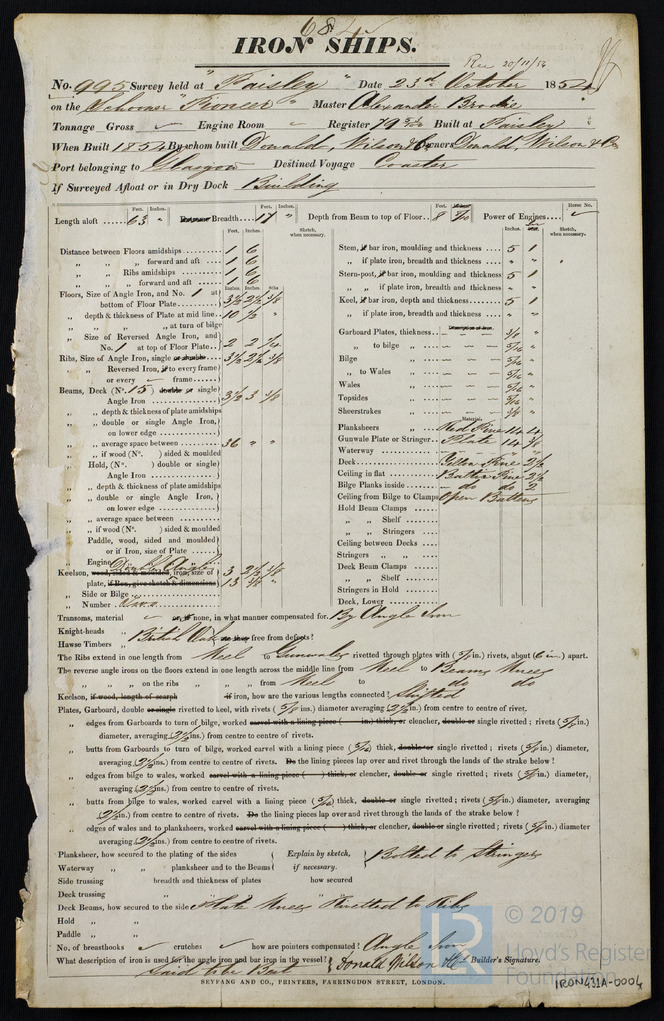 684
IRON SHIPS.
Rec 20/11/54
No. 995 Survey held at Paisley Date 23rd October 1854
on the Schooner "Pioneer" Master Alexander Brodie
Tonnage Gross Engine Room Register 79 Built at Paisley
When Built 1854 By whom built Donald, Wilson & Co Owners Donald, Wilson & Co
Port belonging to Glasgow Destined Voyage Coaster
If Surveyed Afloat or in Dry Dock Building
Length aloft 63 " Breadth 17 " Depth from Beam to top of Floor 8 Power of Engines
Feet. Inches. Sketch, when necessary.
Distance between Floors amidships 1 6
" " " forward and aft 1 6
" " Ribs amidships 1 6
" " " forward and aft 1 6
Floors, Size of Angle Iron, and No. 1 at bottom of Floor Plate 3½ 2½ 3/8
" depth & thickness of Plate at mid line 10
" " " " at turn of bilge
" Size of Reversed Angle Iron, and No. 1 at top of Floor Plate 2 2 1/4
Ribs, Size of Angle Iron, single or double 3½ 2½ 3/8
" Reversed Iron, if to every frame
or every frame
Beams, Deck (No. 15) double or single) Angle Iron 3½ 3 3/8
" " depth & thickness of plate amidships
" " double or single Angle Iron, on lower edge
" " average space between 36 " "
" " if wood (No. ) sided & moulded
" Hold, (No. ) double or single) Angle Iron
" " depth & thickness of plate amidships
" " double or single Angle Iron, on lower edge
" " average space between
" " if wood (No. ) sided & moulded
" Paddle, wood, sided and moulded or if Iron, size of Plate
" Engine
Keelson, wood, sided & moulded, iron, size of Double Angle 3 2½ 3/8
plate, if Box, give sketch & dimensions 13 3/8 "
" Side or Bilge
" Number
Stem, if bar iron, moulding and thickness 5 1
" if plate iron, breadth and thickness " "
Stern-post, if bar iron, moulding and thickness 5 1
" " if plate iron, breadth and thickness " "
Keel, if bar iron, depth and thickness 5 1
" if plate iron, breadth and thickness " "
Description of Iron.
Garboard Plates, thickness 3/8 "
" to bilge 5/16 "
Bilge 5/16 "
" to Wales 5/16 "
Wales 5/16 "
Topsides 5/16 "
Sheerstrakes 3/8 "
Material.
Planksheers Red Pine 14 4
Gunwale Plate or Stringer Plate 14 3/8
Waterway
Deck Yellow Pine 2½
Ceiling in flat Baltic Pine 2½
Bilge Planks inside do do 2
Ceiling from Bilge to Clamps Open Battens
Hold Beam Clamps
" " Shelf
" " Stringers
Ceiling between Decks
Stringers " "
Deck Beam Clamps
" " Shelf
Stringers in Hold
Deck, Lower
Transoms, material or, if none, in what manner compensated for. By Angle Iron
Knight-heads
Hawse Timbers " British Oak are they free from defects!
The Ribs extend in one length from Keel to Gunwales rivetted through plates with (5/8 in.) rivets, about (6 in.) apart.
The reverse angle irons on the floors extend in one length across the middle line from Keel to Beams Knees
" " " on the ribs " " from Keel to do do
Keelson, if wood, length of scarph if iron, how are the various lengths connected? Shifted
Plates, Garboard, double or single rivetted to keel, with rivets (5/8 ins.) diameter averaging (2½ in.) from centre to centre of rivet.
" edges from Garboards to turn of bilge, worked carvel with a lining piece ( in.) thick, or clencher, double or single rivetted; rivets (5/8 in.)
diameter, averaging (2½ ins.) from centre to centre of rivets.
" butts from Garboards to turn of bilge, worked carvel with a lining piece (5/16) thick, double or single rivetted; rivets (5/8 in.) diameter,
averaging (2½ in.) from centre to centre of rivets. Do the lining pieces lap over and rivet through the lands of the strake below?
" edges from bilge to wales, worked carvel with a lining piece ( ) thick, or clencher, double or single rivetted; rivets (5/8 in.) diameter,
averaging (2½ in.) from centre to centre of rivets.
" butts from bilge to wales, worked carvel with a lining piece (5/16) thick, double or single rivetted; rivets (5/8 in.) diameter, averaging
(2½ in.) from centre to centre of rivets. Do the lining pieces lap over and rivet through the lands of the strake below?
" edges of wales and to planksheers, worked carvel with a lining piece ( ) thick, or clencher, double or single rivetted; rivets (5/8 in.) diameter
averaging (2½ ins.) from centre to centre of rivets.
Planksheer, how secured to the plating of the sides { Explain by sketch, } Bolted to Stringers
Waterway " planksheer and to the Beams { if necessary.
Side trussing breadth and thickness of plates how secured
Deck trussing " "
Deck Beams, how secured to the side Plate Knees Rivetted to Ribs
Hold " "
Paddle " "
No. of breasthooks crutches how are pointers compensated? Angle Iron
What description of iron is used for the angle iron and bar iron in the vessel? Donald Wilson & Co Builder's Signature.
Said to be Best
SEYFANG AND CO., PRINTERS, FARRINGDON STREET, LONDON.
© 2019
Lloyd's Register
Foundation
IRON431A-0004